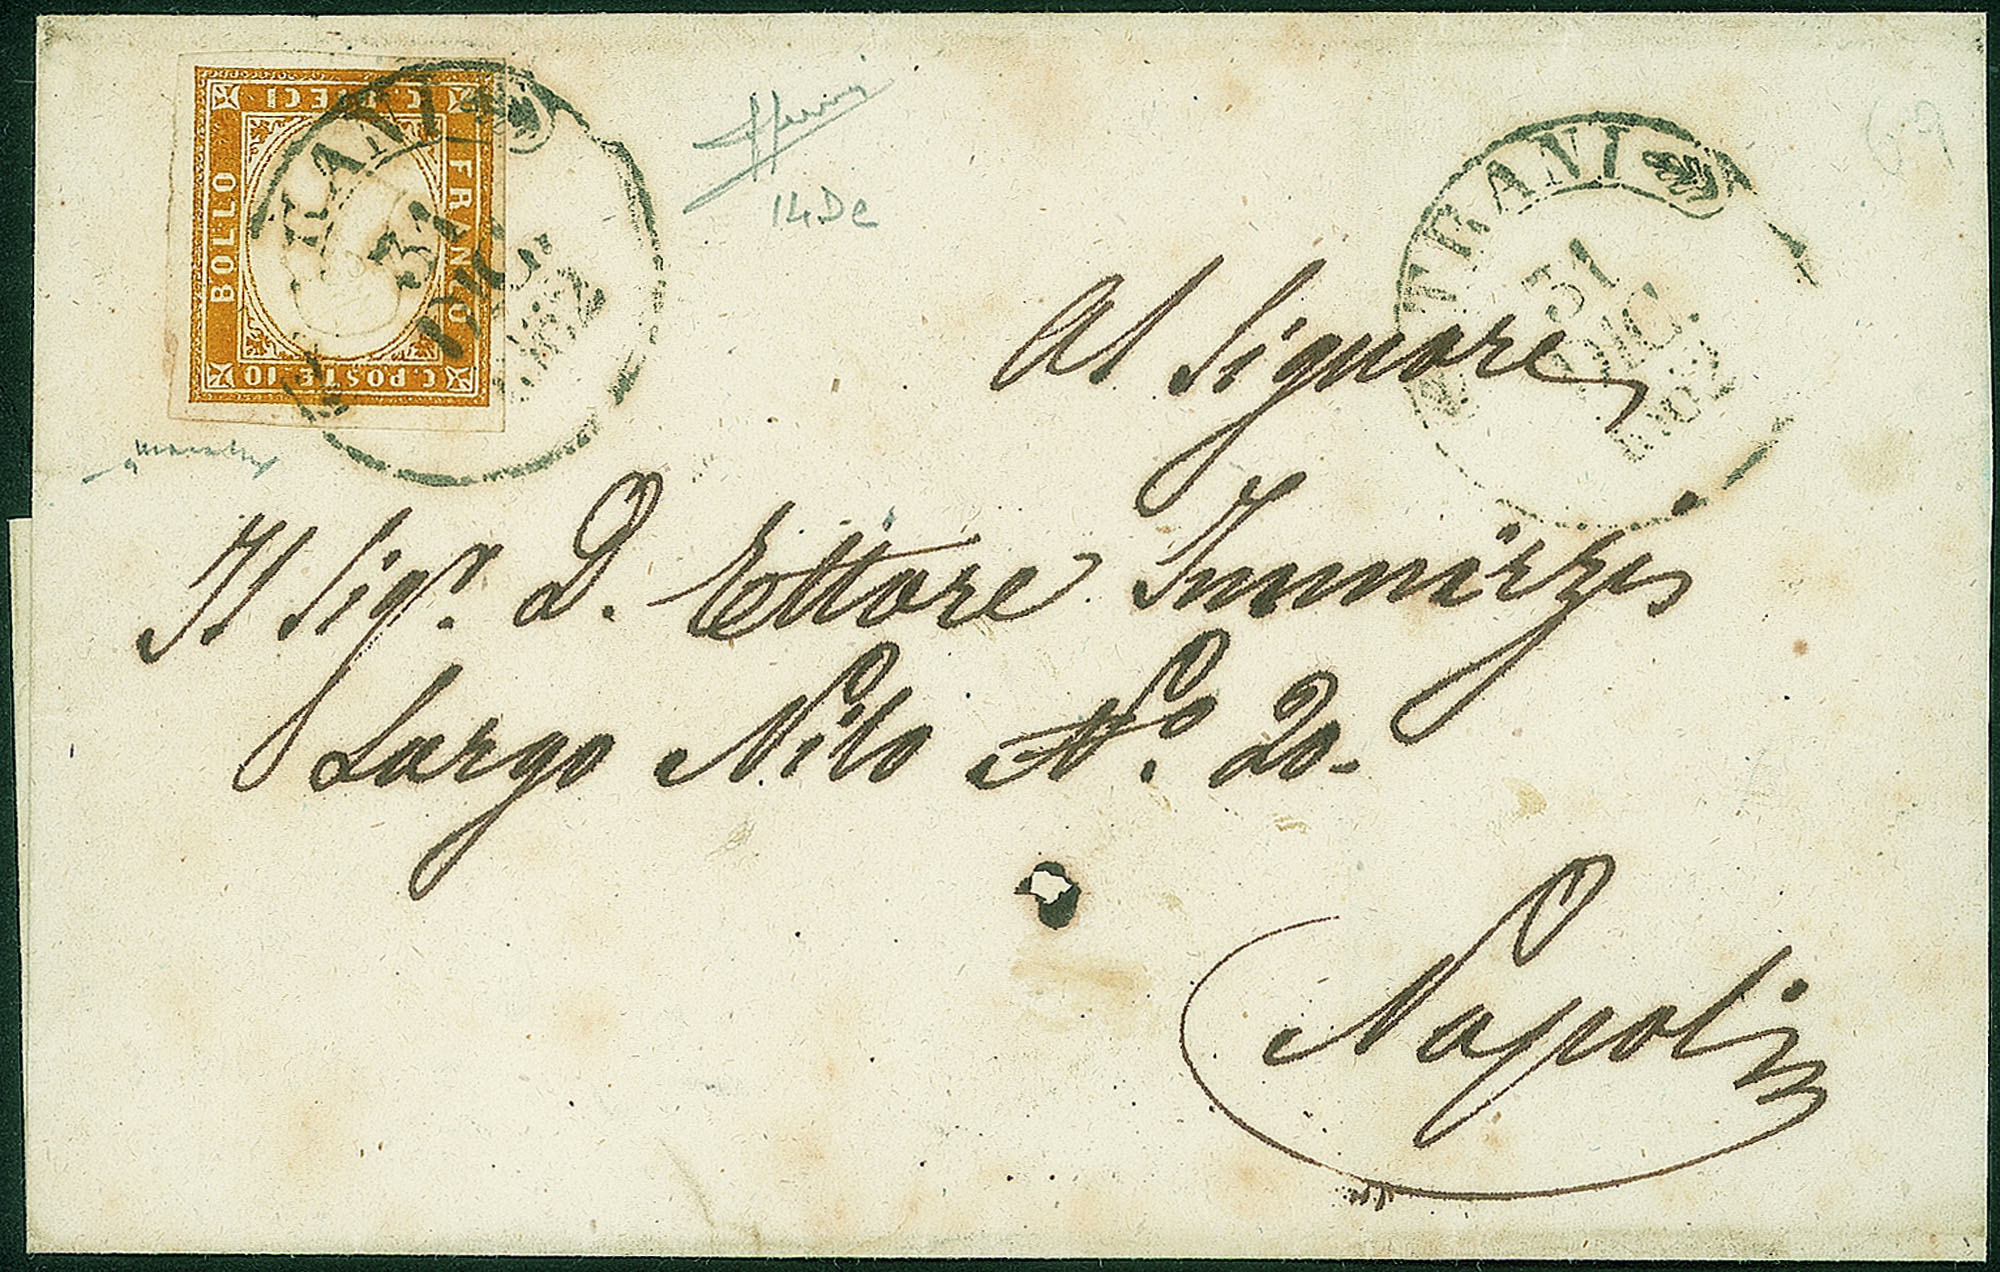 C. DIECI
BOLLO
FRANCO
C. POSTE. 10
TRANI
31
DIC.
1862
14Dc
TRANI
31
DIC.
1862
69
Al Signore
Il Sigr. D. Ettore
Largo Nilo No. 20-
Napoli